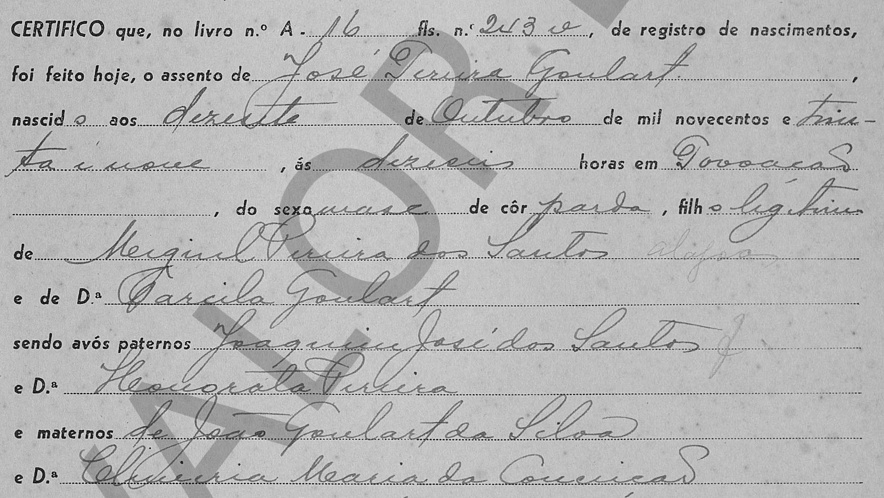 CERTIFICO que, no livro n.º A - 16 fls. n.º 243 v, de registro de nascimentos,
foi feito hoje, o assento de José Pereira Goulart,
nascido aos dezesete de Outubro de mil novecentos e trin-
ta i nove, ás dezeseis horas em Povoacão
, do sexo masc de côr parda, filho ligitimo
de Meiguel Pereira dos Santos
e de D.ª Tarcila Goulart
sendo avós paternos Joaquim José dos Santos
e D.ª Honoráta Pereira
e maternos de João Goulart da Silva
e D.ª Maria da Conceicão
VALOR